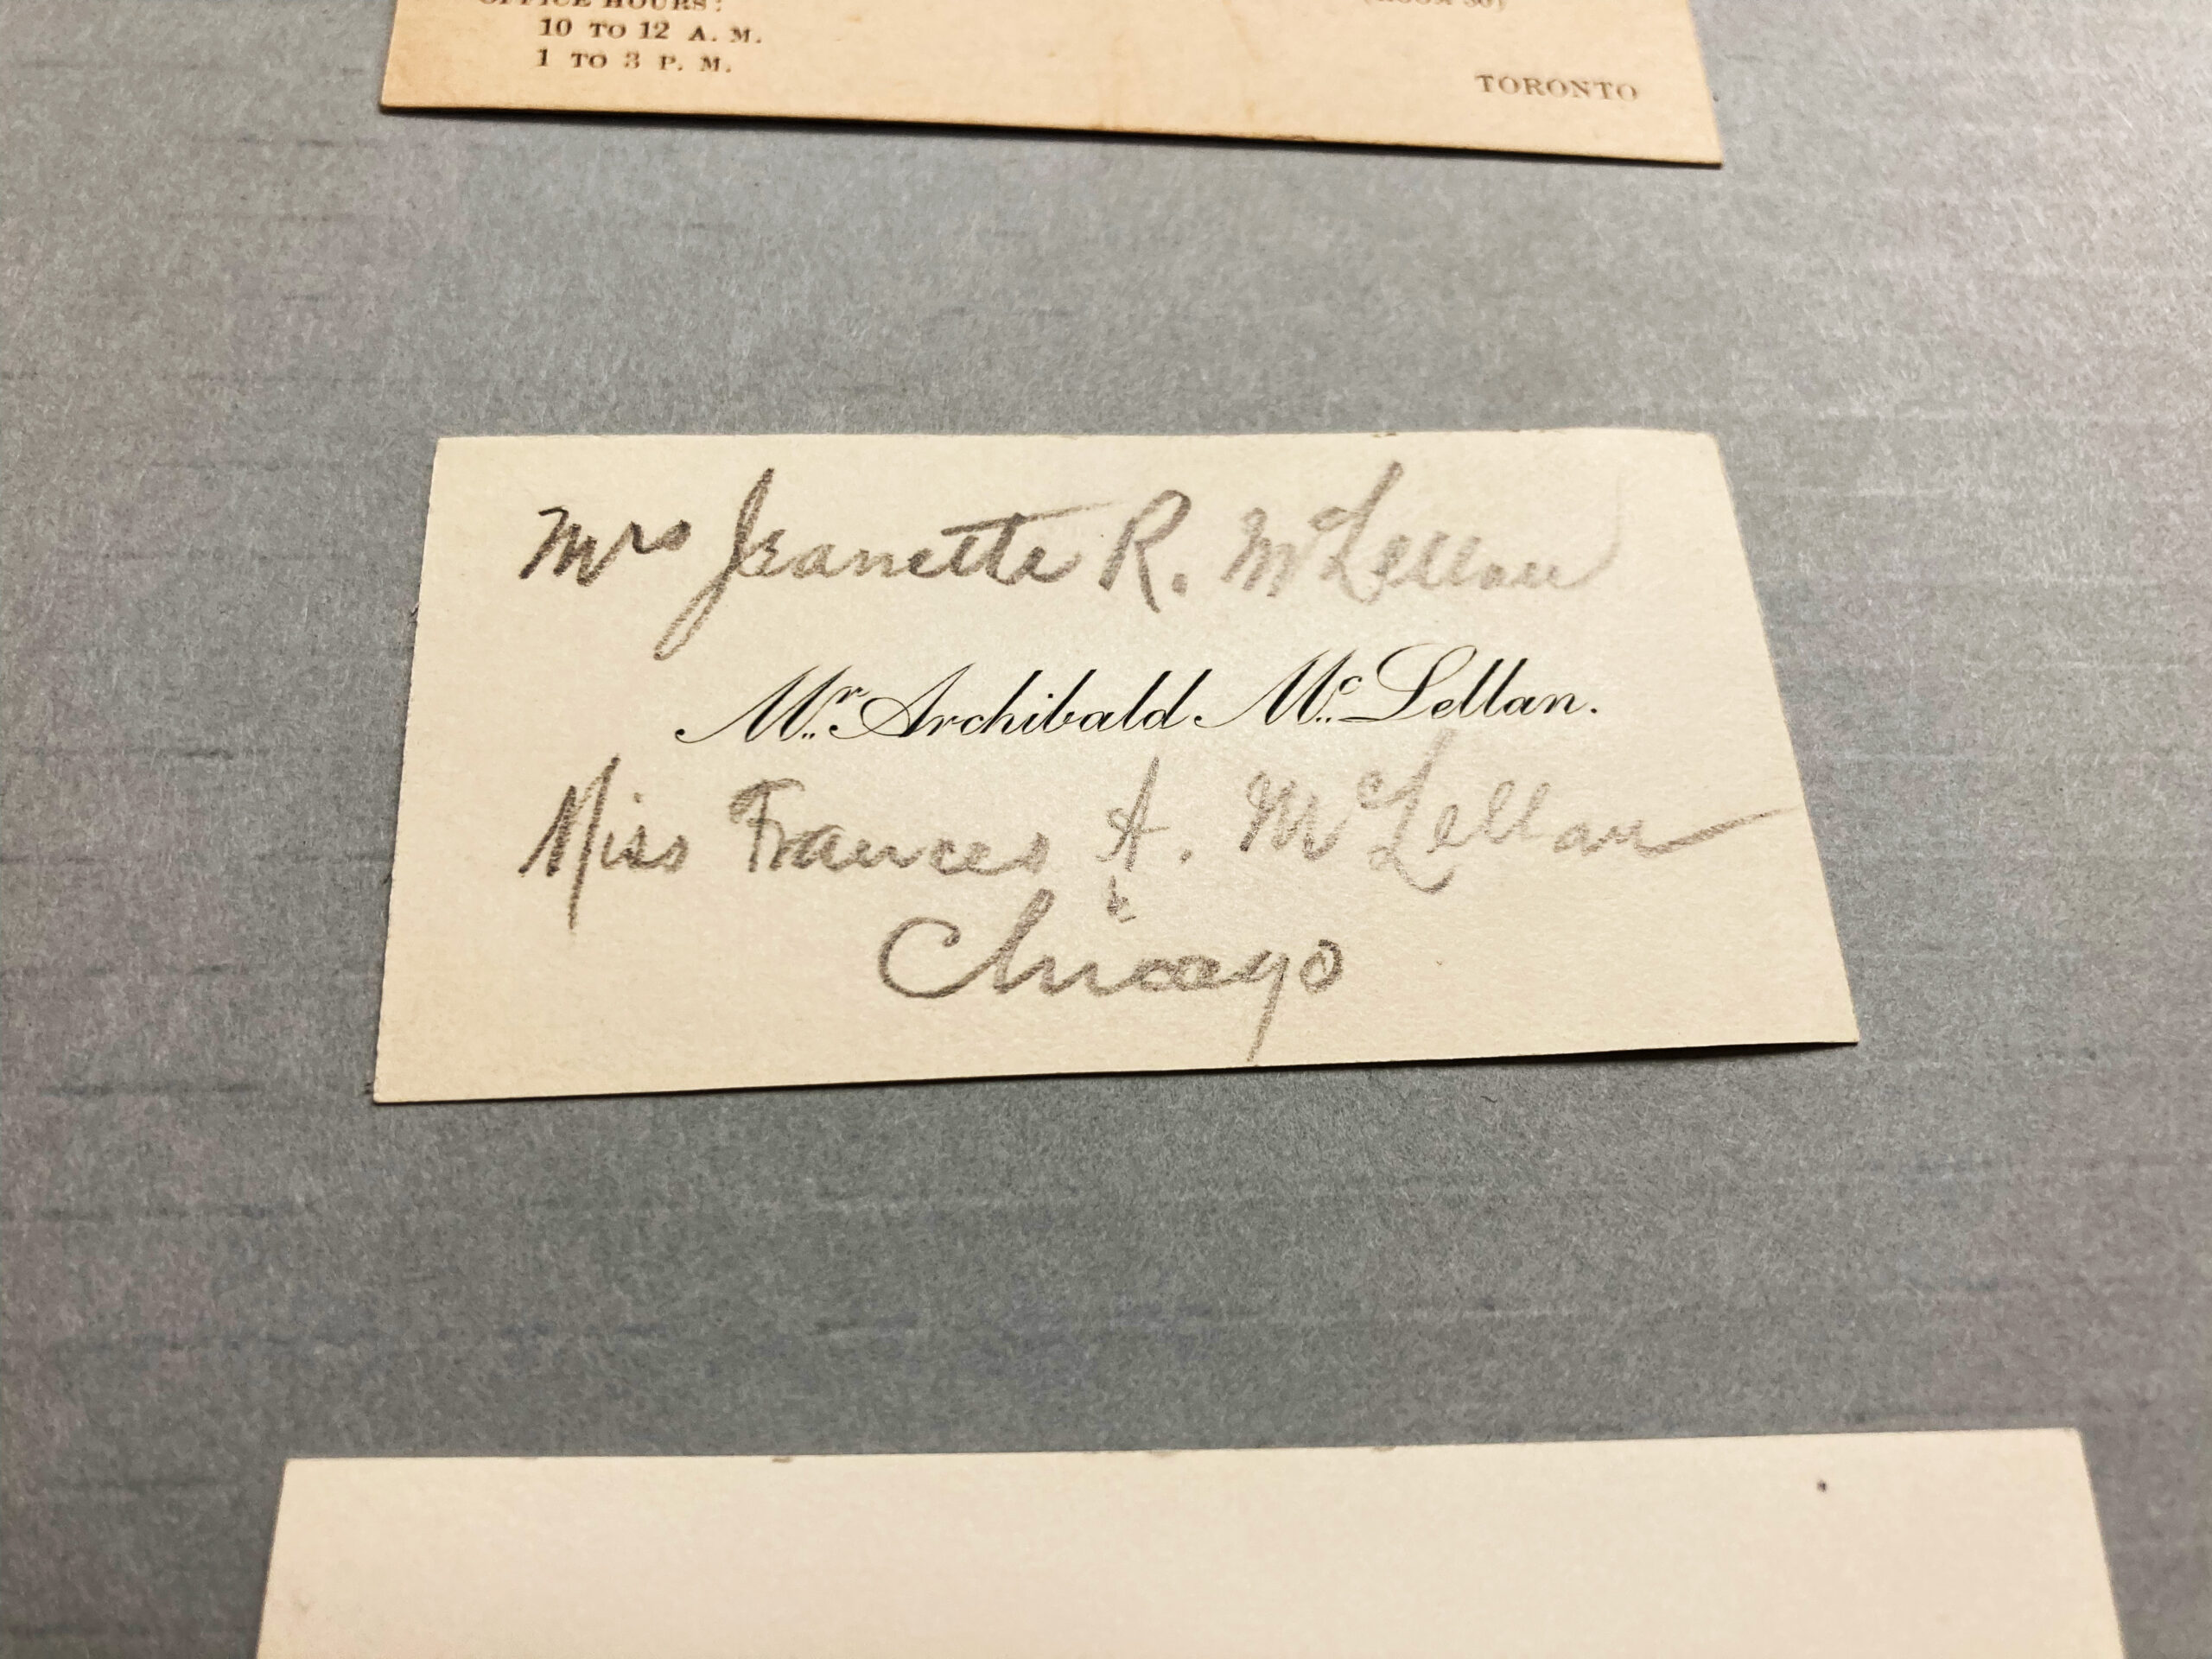 OFFICE HOURS:
10 TO 12 A. M.
1 TO 3 P. M.
(ROOM 30)
TORONTO
Mrs Jeanette R. McLellan
Mr. Archibald McLellan.
Miss Frances A. McLellan
Chicago